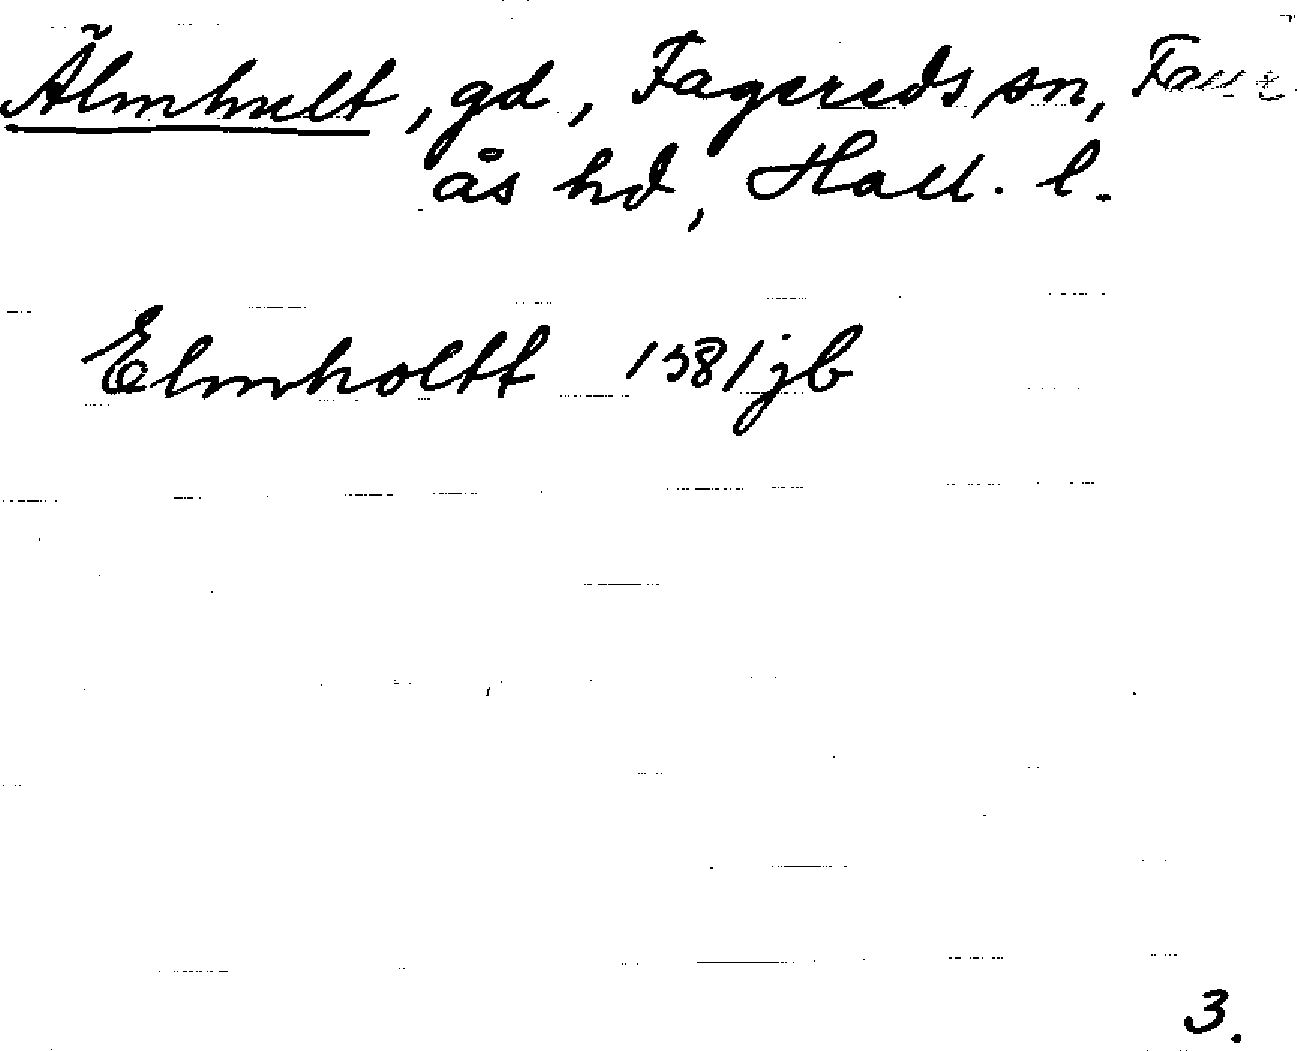 Älmhult, gd, Fagereds sn, Faur
ås hd, Hall. l.
Elmholtt 1581 jb
3.